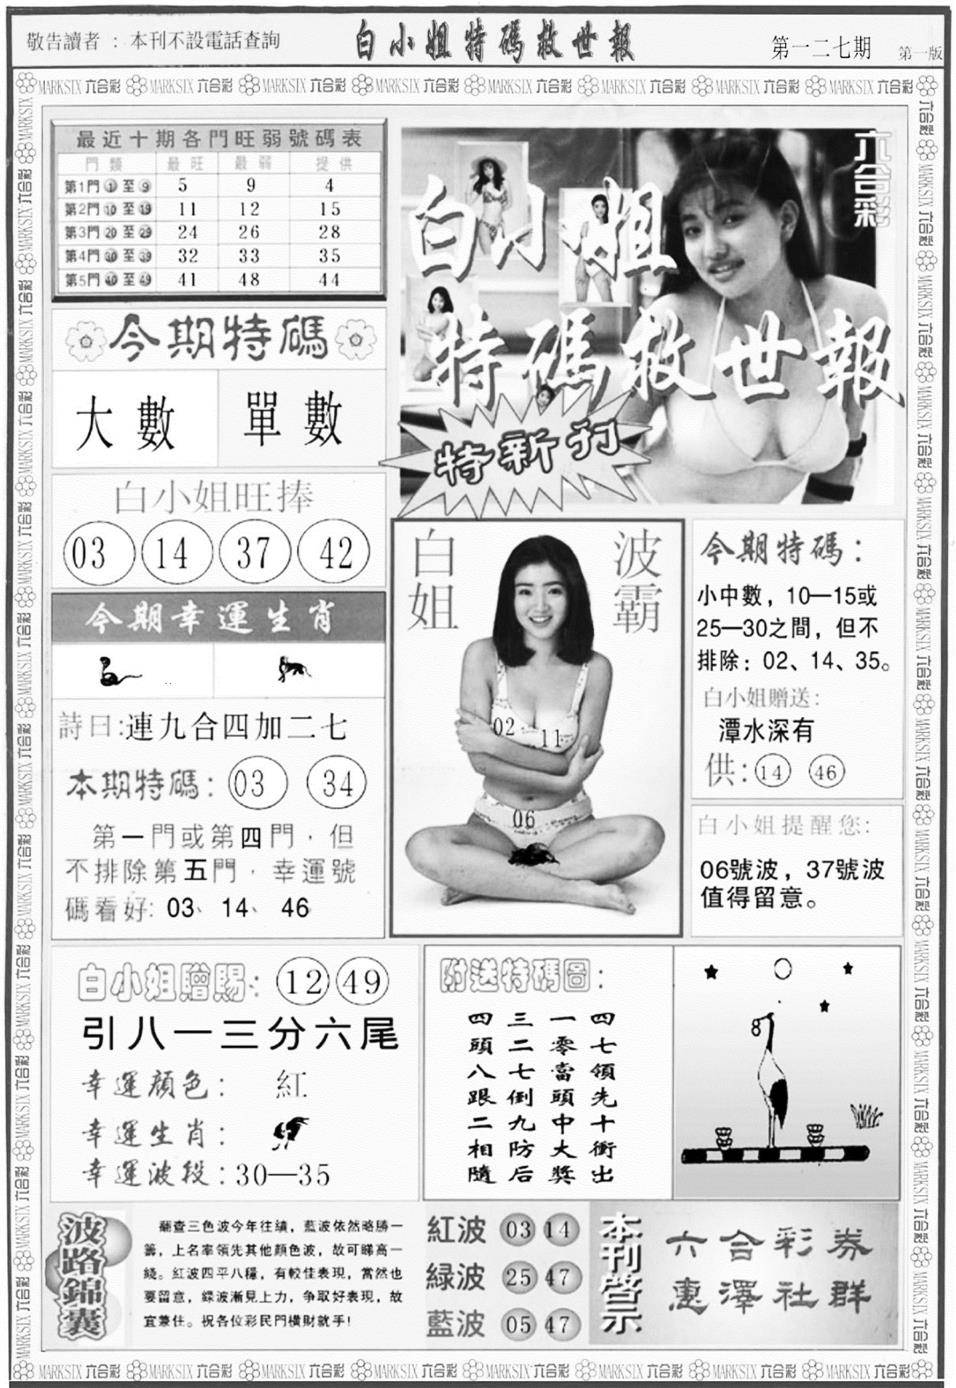 敬告讀者：本刊不設電話查詢
白小姐特碼救世報
第一二七期
第一版
MARKSIX 六合彩
最近十期各門旺弱號碼表
門類 最旺 最弱 提供
第1門①至⑨ 5 9 4
第2門⑩至⑲ 11 12 15
第3門⑳至㉙ 24 26 28
第4門㉚至㊴ 32 33 35
第5門㊵至㊾ 41 48 44
六合彩
白小姐
特碼救世報
特新刊
今期特碼
大數 單數
白小姐旺捧
03 14 37 42
今期幸運生肖
詩曰:連九合四加二七
本期特碼: 03 34
第一門或第四門，但
不排除第五門，幸運號
碼看好: 03、14、46
白姐
波霸
02 11
06
今期特碼：
小中數，10—15或
25—30之間，但不
排除：02、14、35。
白小姐贈送:
潭水深有
供: 14 46
白小姐提醒您:
06號波，37號波
值得留意。
白小姐贈賜: 12 49
引八一三分六尾
幸運顏色： 紅
幸運生肖：
幸運波段：30—35
附送特碼圖：
四七領先十衝出
一零當頭中大獎
三二七倒九防后
四頭八跟二相隨
8
波路錦囊
翻查三色波今年往績，藍波依然略勝一
籌，上名率領先其他顏色波，故可睇高一
綫。紅波四平八穩，有較佳表現，當然也
要留意，綠波漸見上力，爭取好表現，故
宜兼住。祝各位彩民門橫財就手!
紅波 03 14
綠波 25 47
藍波 05 47
本刊啓示
六合彩券
惠澤社群